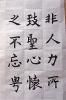 非人力所
致聖心懷
之不忘粵